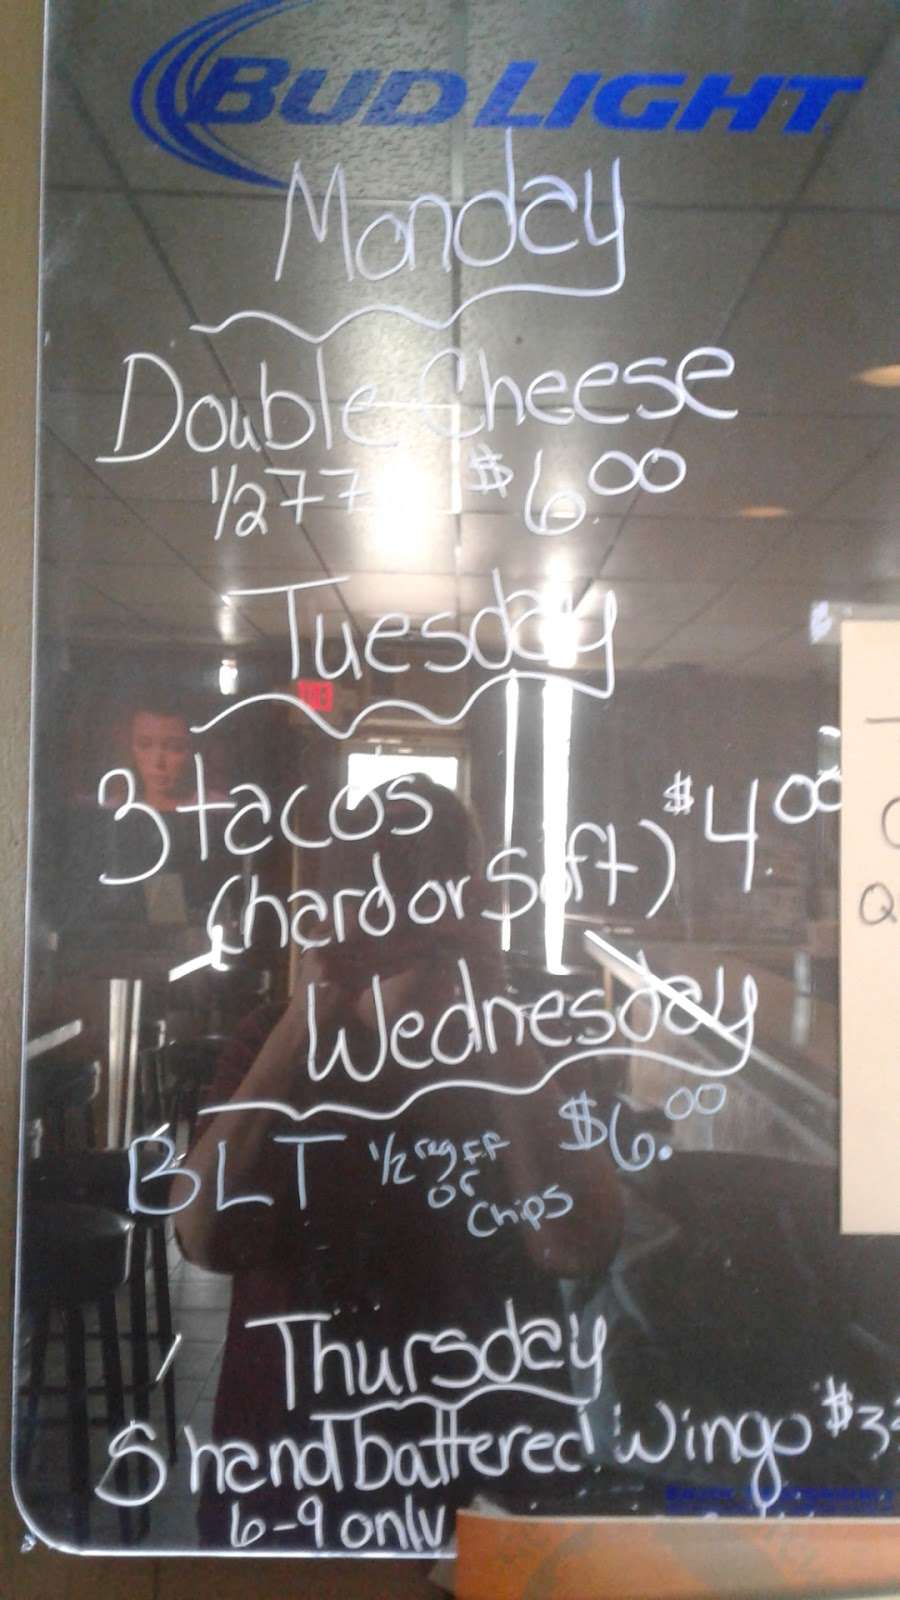 BUD LIGHT
Monday
Double Cheese
1/2 FF $6.00
Tuesday
3 tacos $4.00
(hard or Soft)
Wednesday
BLT 1/2 reg FF $6.00
or
Chips
Thursday
hand battered Wings
6-9 only